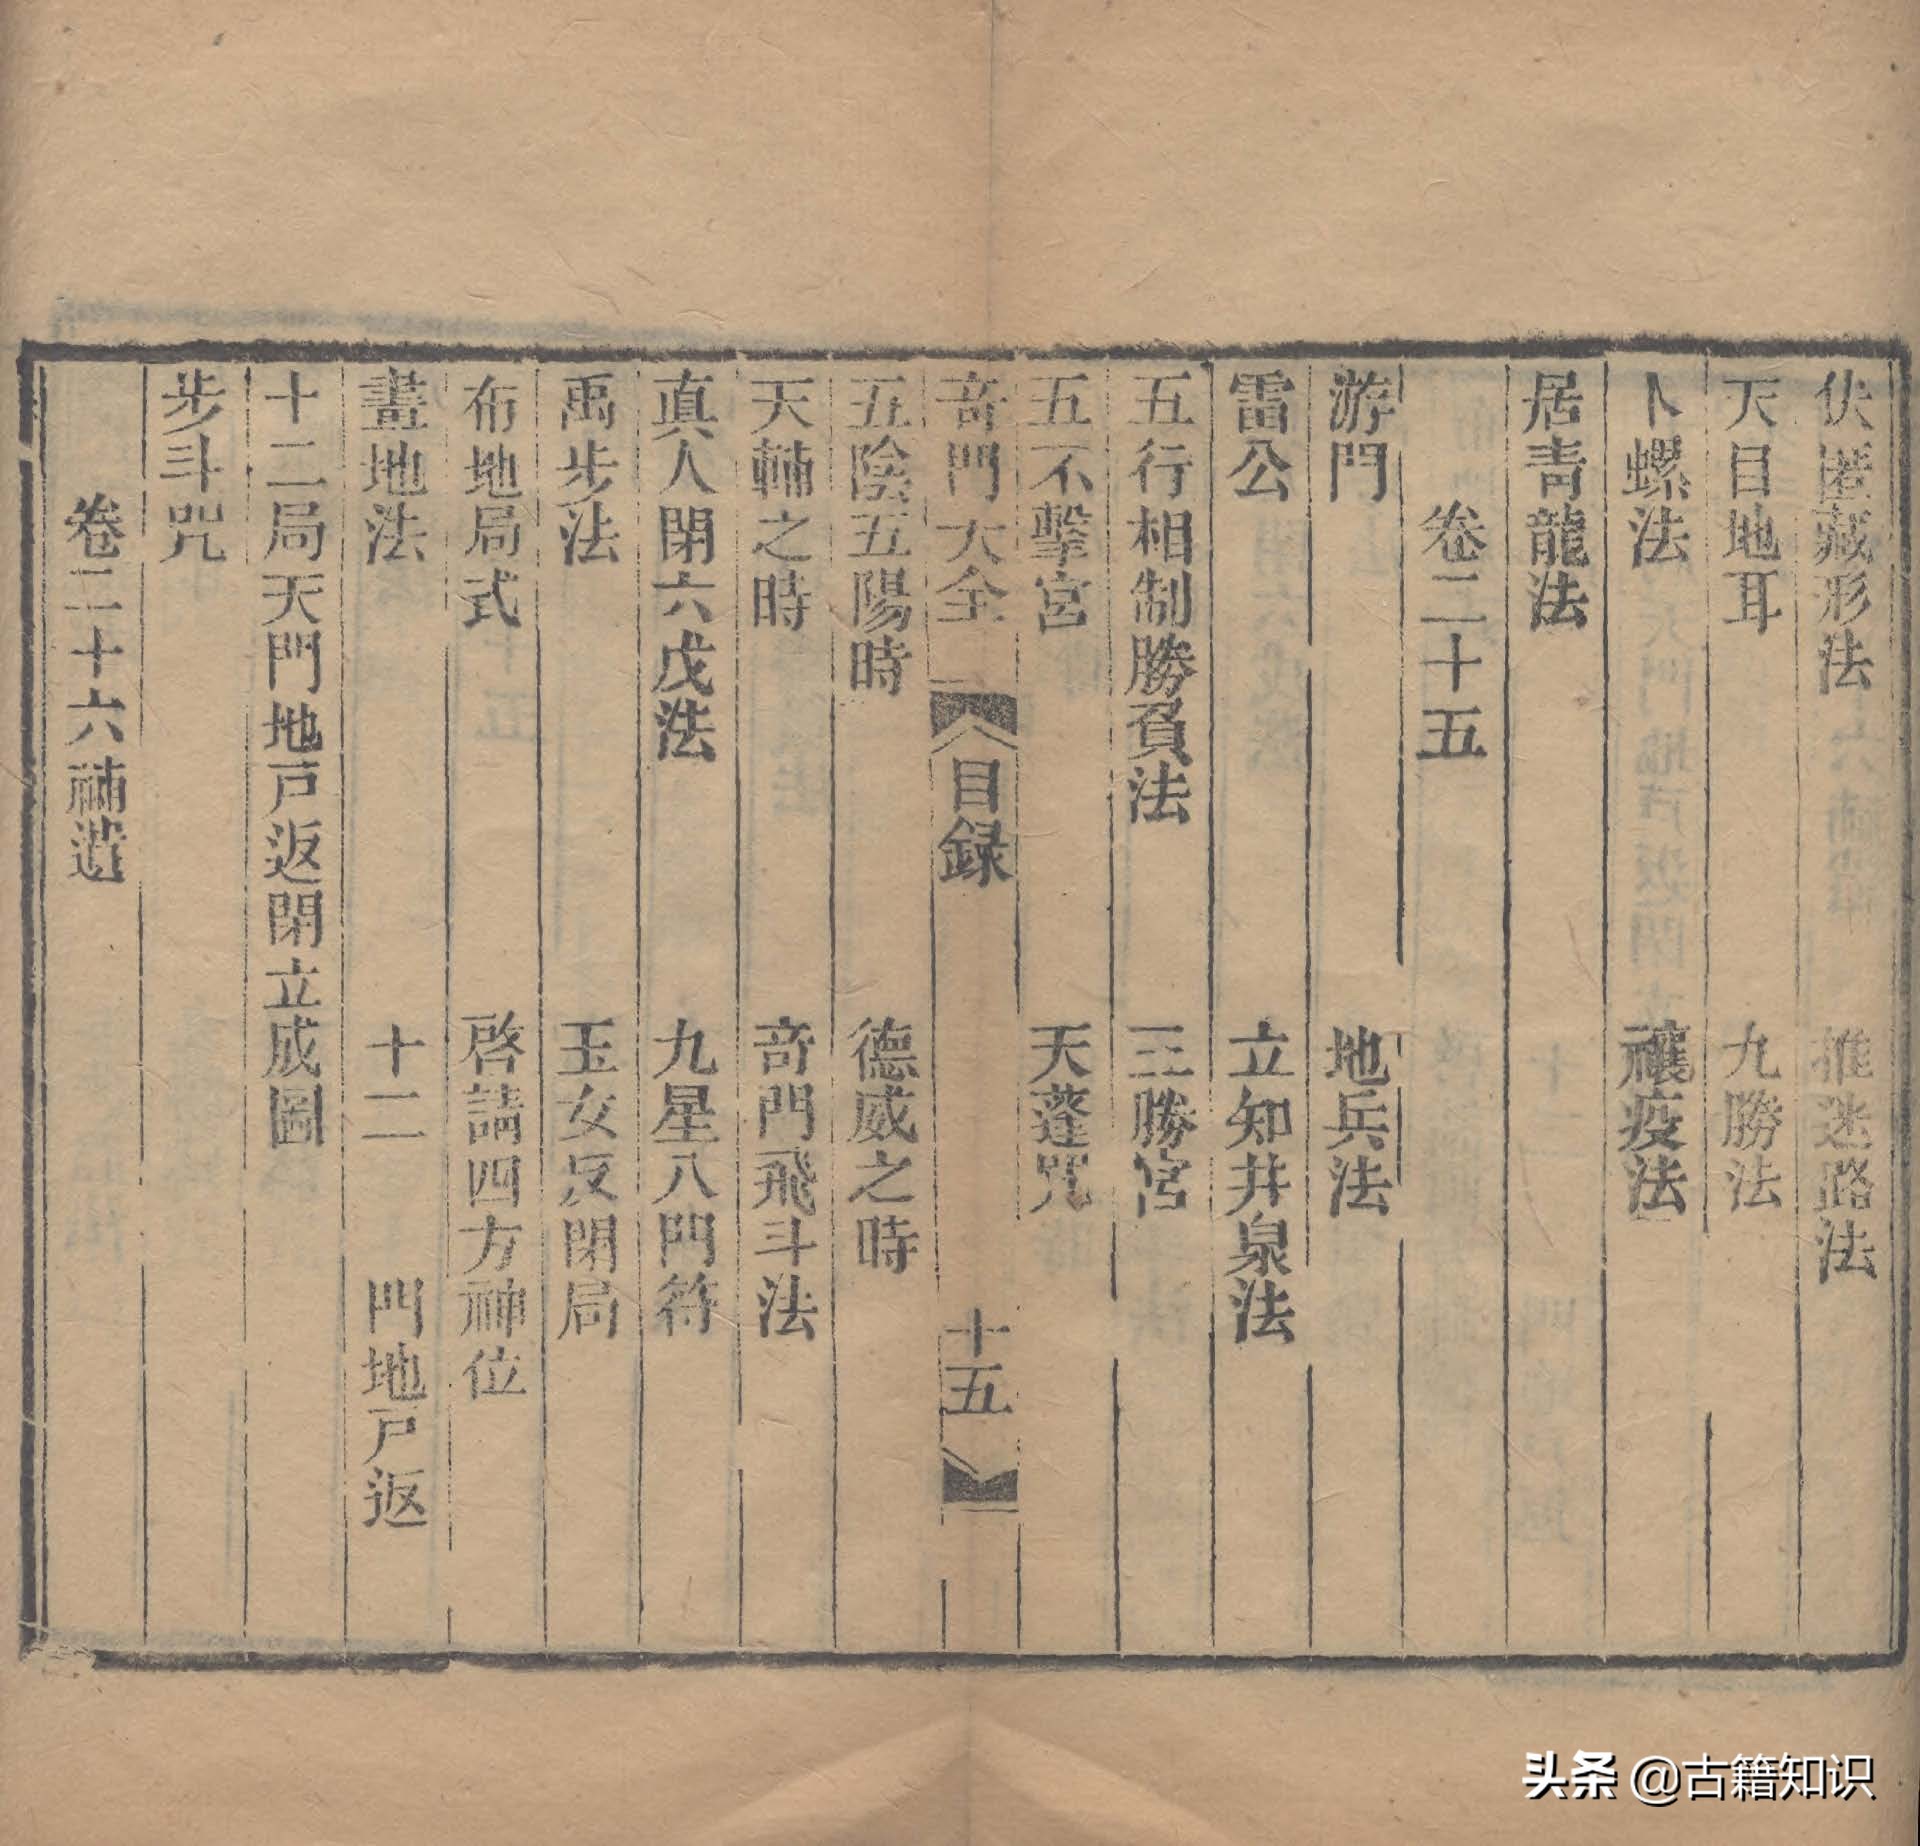 伏匿藏形法　推迷路法
天目地耳　九勝法
卜螺法　禳疫法
居青龍法
卷二十五
游門　地兵法
雷公　立知井泉法
五行相制勝負法　三勝宮
五不擊宮　天蓬咒
奇門大全　目録　十五
五陰五陽時　德威之時
天輔之時　奇門飛斗法
真人閉六戊法　九星八門符
禹步法　玉女反閉局
布地局式　啓請四方神位
畫地法　十二　門地戸返
十二局天門地戸返閉立成圖
步斗咒
卷二十六補遺
头条 @古籍知识